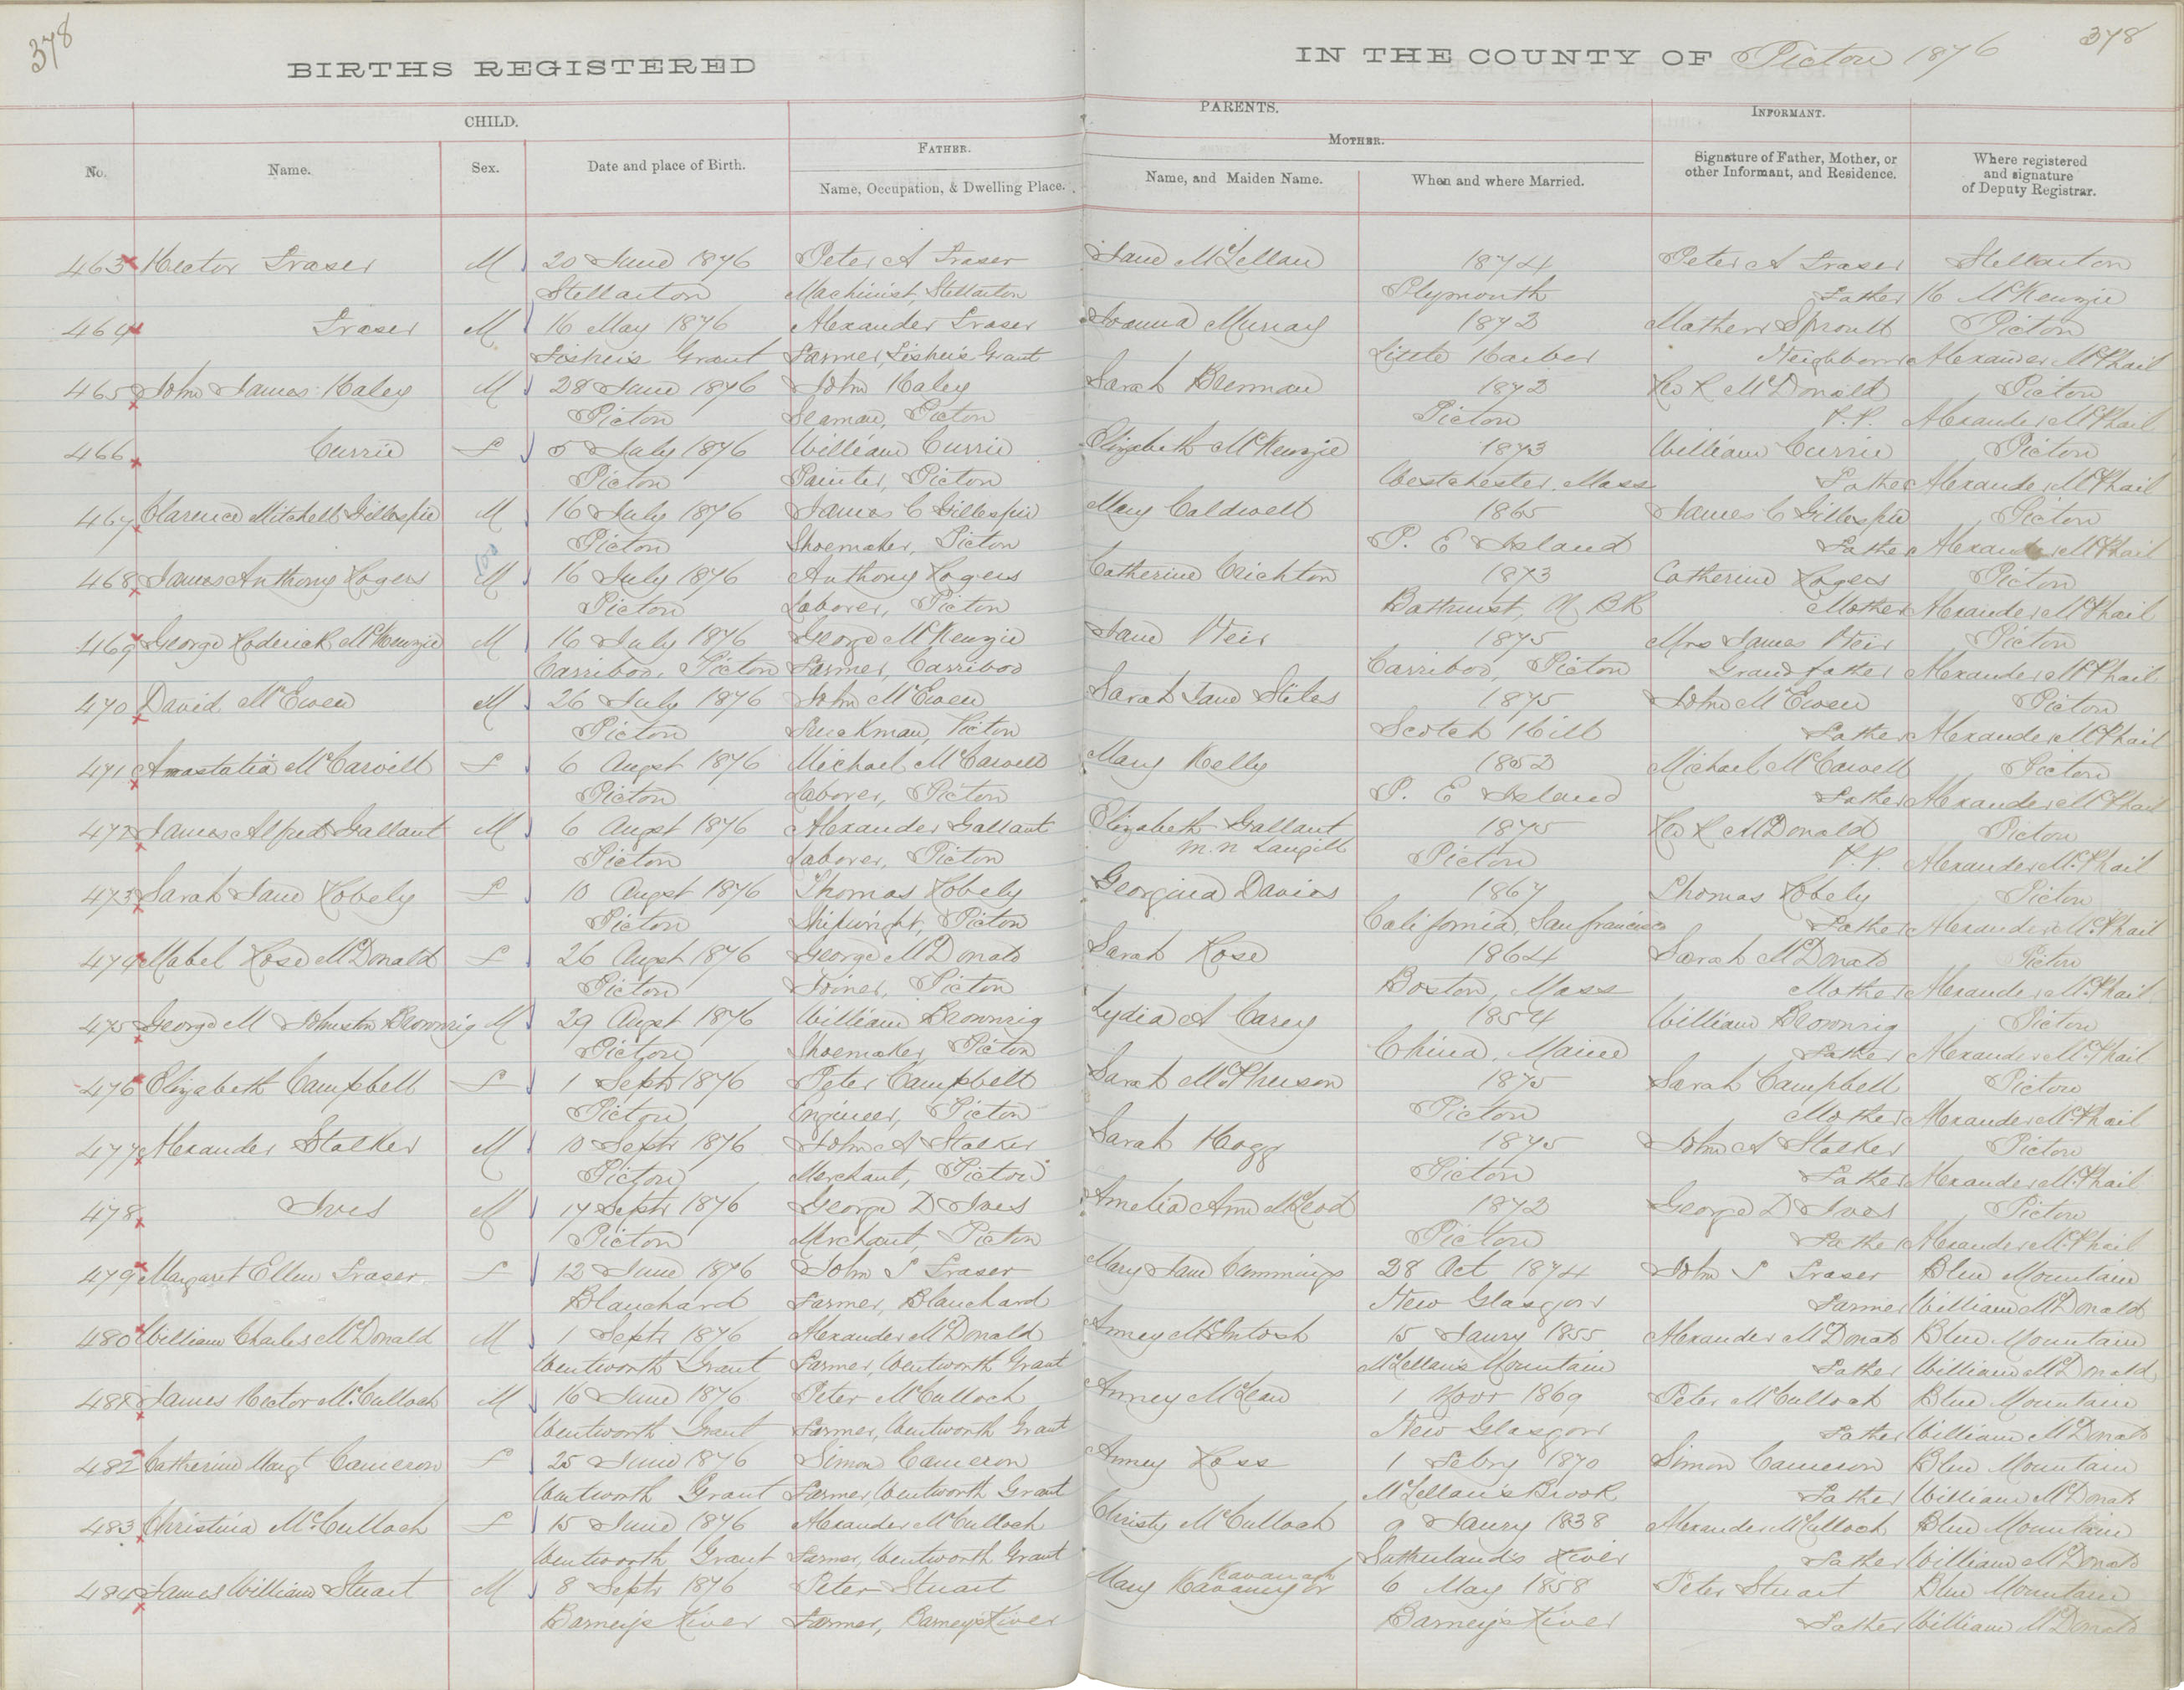 378
378
BIRTHS REGISTERED
IN THE COUNTY OF Pictou 1876
CHILD.
PARENTS.
INFORMANT.
FATHER.
MOTHER.
No.
Name.
Sex.
Date and place of Birth.
Name, Occupation, & Dwelling Place.
Name, and Maiden Name.
When and where Married.
Signature of Father, Mother, or other Informant, and Residence.
Where registered and signature of Deputy Registrar.
463 Hector Fraser M 20 June 1876 Peter A Fraser Jane McLellan 1874 Peter A Fraser Stellarton
Stellarton Machinist, Stellarton Plymouth Father H McKenzie
464 Fraser M 16 May 1876 Alexander Fraser Joanna Murray 1872 Mathew Sproull Pictou
Fisher's Grant Farmer, Fisher's Grant Little Harbor Neighbour Alexander McPhail
465 John James Haley M 28 June 1876 John Haley Sarah Brennan 1872 Rev R McDonald Pictou
Pictou Seaman, Pictou Pictou P.P. Alexander McPhail
466 Currie F 5 July 1876 William Currie Elizabeth McKenzie 1873 William Currie Pictou
Pictou Painter, Pictou Westchester, Mass Father Alexander McPhail
467 Clarence Mitchell Gillespie M 16 July 1876 James C Gillespie Mary Caldwell 1865 James C Gillespie Pictou
Pictou Shoemaker, Pictou P. E Island Father Alexander McPhail
468 James Anthony Rogers M 16 July 1876 Anthony Rogers Catherine Crichton 1873 Catherine Rogers Pictou
Pictou Laborer, Pictou Bathurst, N. BK Mother Alexander McPhail
469 George Roderick McKenzie M 16 July 1876 George McKenzie Jane Weir 1875 Mrs James Weir Pictou
Carriboo, Pictou Farmer, Carriboo Carriboo, Pictou Grand father Alexander McPhail
470 David McEwen M 26 July 1876 John McEwen Sarah Jane Stiles 1875 John McEwen Pictou
Pictou Truckman, Pictou Scotch Hill Father Alexander McPhail
471 Anastatia McCarvill F 6 Augst 1876 Michael McCarvill Mary Kelly 1852 Michael McCarvell Pictou
Pictou Laborer, Pictou P. E Island Father Alexander McPhail
472 James Alfred Gallant M 6 Augst 1876 Alexander Gallant Elizabeth Gallant 1875 Rev R McDonald Pictou
Pictou Laborer, Pictou m.n Langill Pictou P.P. Alexander McPhail
473 Sarah Jane Robely F 10 Augst 1876 Thomas Robely Georgina Davies 1867 Thomas Robely Pictou
Pictou Shipwright, Pictou California, Sanfrancisco Father Alexander McPhail
474 Mabel Rose McDonald F 26 Augst 1876 George McDonald Sarah Rose 1864 Sarah McDonald Pictou
Pictou Joiner, Pictou Boston, Mass Mother Alexander McPhail
475 George M Johnston Brownrig M 29 Augst 1876 William Brownrig Lydia A Carey 1854 William Brownrig Pictou
Pictou Shoemaker, Pictou China, Maine Father Alexander McPhail
476 Elizabeth Campbell F 1 Septr 1876 Peter Campbell Sarah McPherson 1875 Sarah Campbell Pictou
Pictou Engineer, Pictou Pictou Mother Alexander McPhail
477 Alexander Stalker M 10 Septr 1876 John A Stalker Sarah Hogg 1875 John A Stalker Pictou
Pictou Merchant, Pictou Pictou Father Alexander McPhail
478 Ives M 17 Septr 1876 George D Ives Amelia Ann McLeod 1872 George D Ives Pictou
Pictou Merchant, Pictou Pictou Father Alexander McPhail
479 Margaret Ellen Fraser F 12 June 1876 John S Fraser Mary Jane Cummings 28 Oct 1874 John S Fraser Blue Mountain
Blanchard Farmer, Blanchard New Glasgow Farmer William McDonald
480 William Charles McDonald M 1 Septr 1876 Alexander McDonald Anney McIntosh 15 Jaury 1855 Alexander McDonald Blue Mountain
Wentworth Grant Farmer, Wentworth Grant McLellan's Mountain Father William McDonald
481 James Hector McCulloch M 16 June 1876 Peter McCulloch Anney McLean 1 Novr 1869 Peter McCulloch Blue Mountain
Wentworth Grant Farmer, Wentworth Grant New Glasgow Father William McDonald
482 Catherine Margt Cameron F 25 June 1876 Simon Cameron Anney Ross 1 Febry 1870 Simon Cameron Blue Mountain
Wentworth Grant Farmer, Wentworth Grant McLellan's Brook Father William McDonald
483 Christina McCulloch F 15 June 1876 Alexander McCulloch Christy McCulloch 9 Jaury 1838 Alexander McCulloch Blue Mountain
Wentworth Grant Farmer, Wentworth Grant Sutherland's River Father William McDonald
484 James William Stuart M 8 Septr 1876 Peter Stuart Mary Kavaney or Kavanagh 6 May 1858 Peter Stuart Blue Mountain
Barney's River Farmer, Barney's River Barney's River Father William McDonald